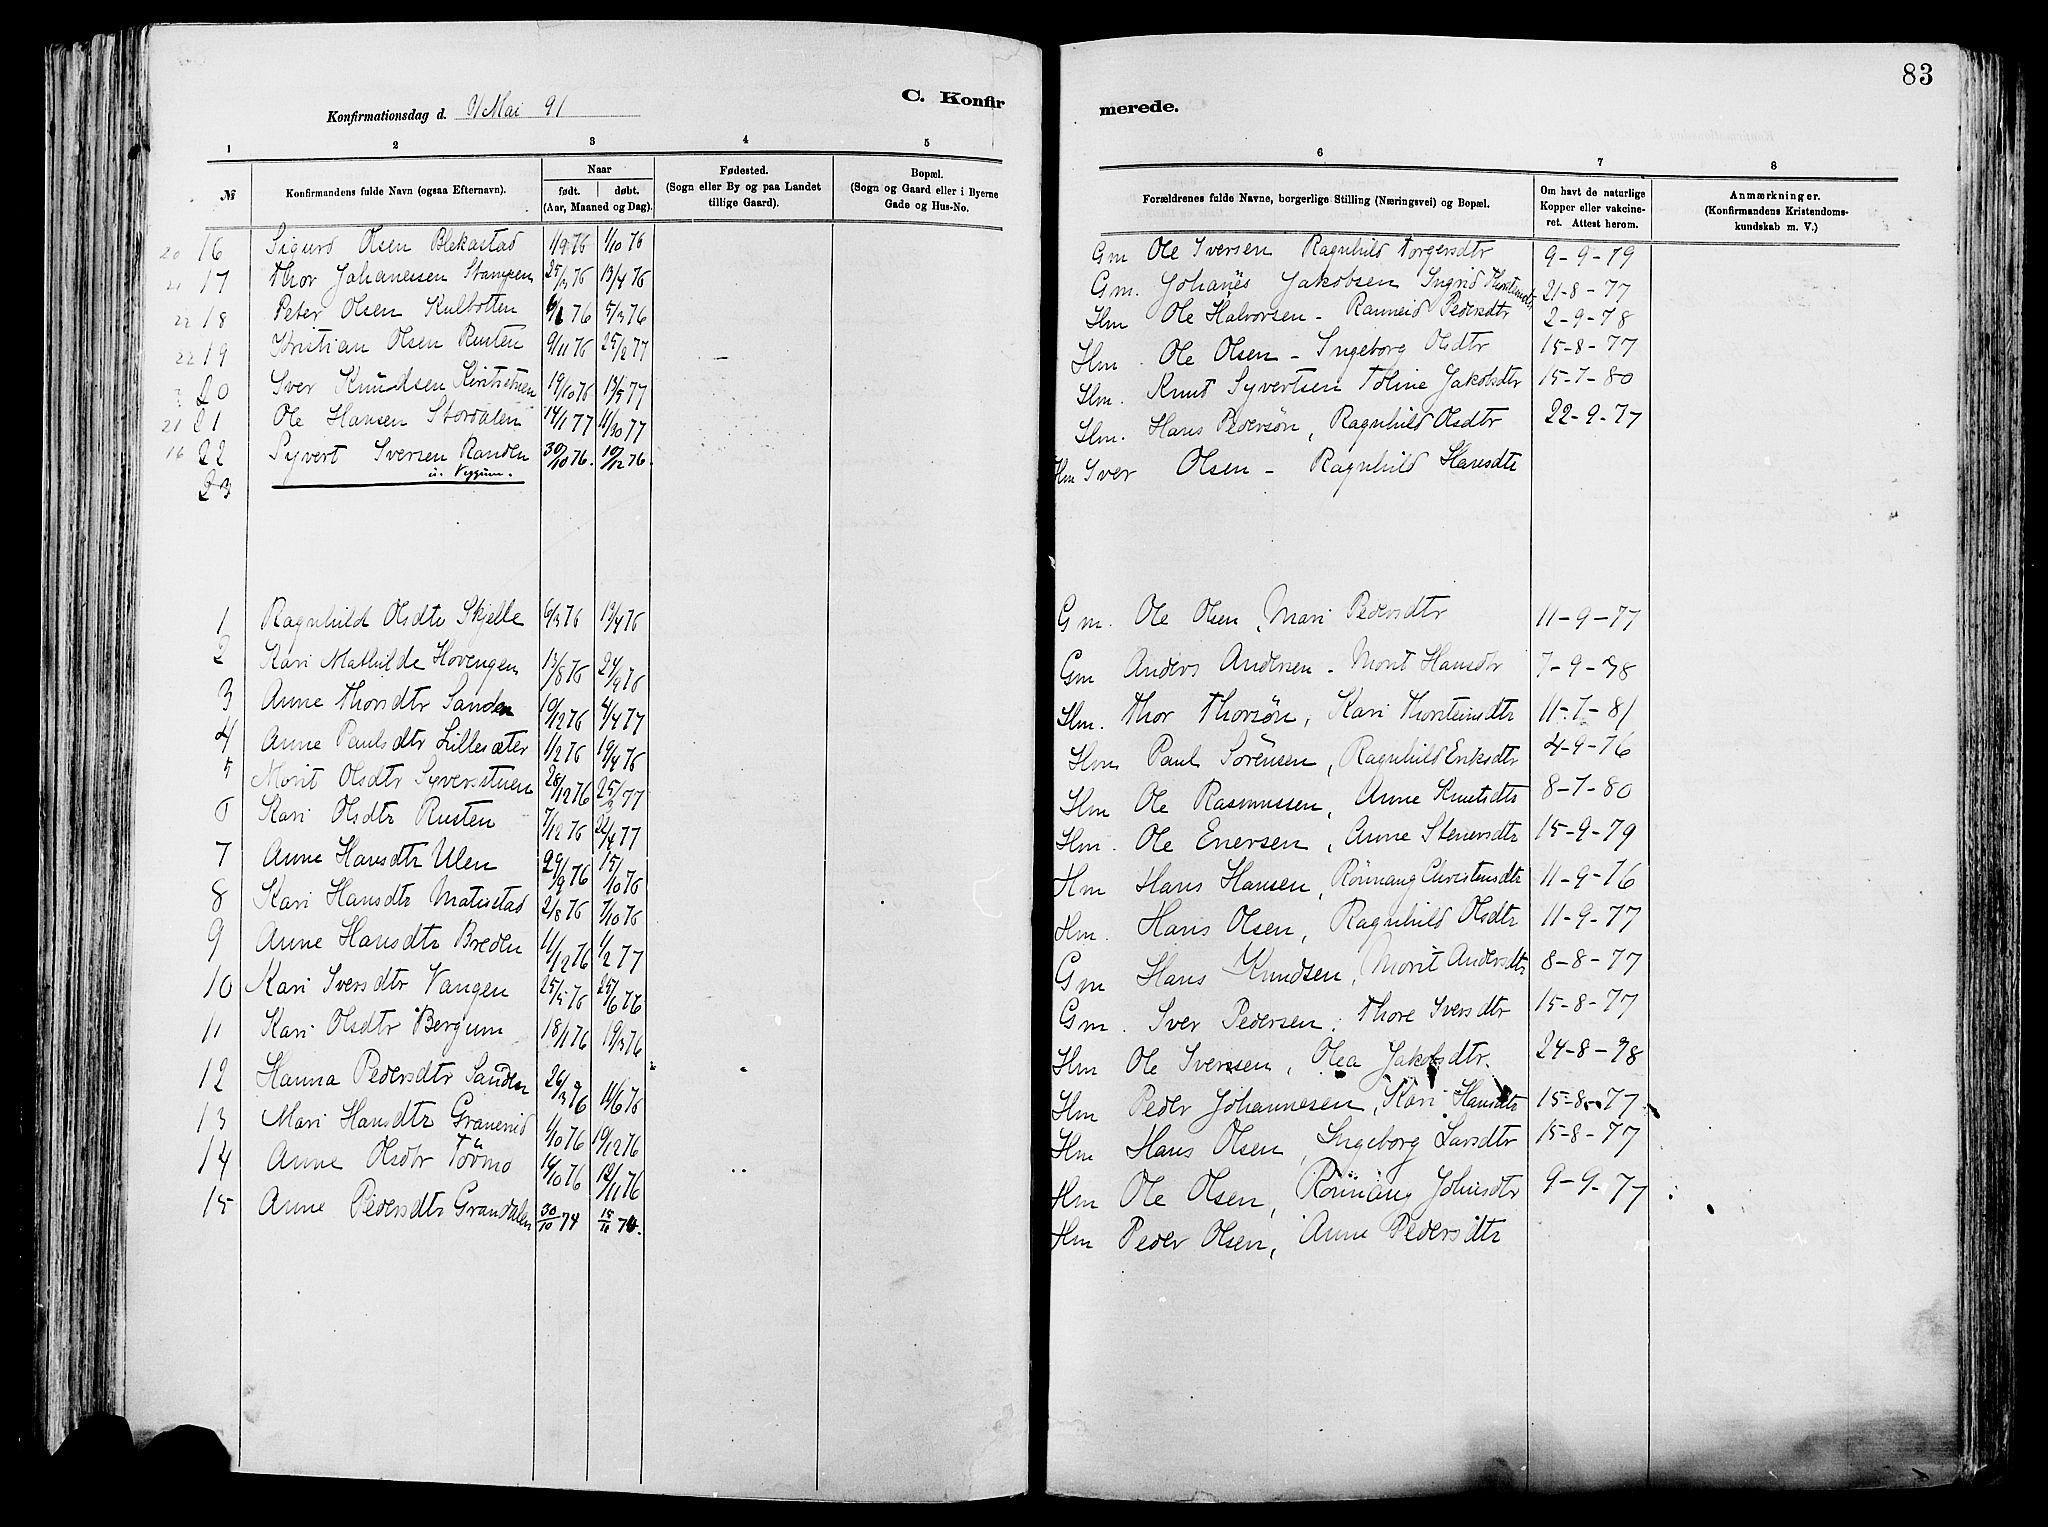 83
C. Konfirmerede.
Konfirmationsdag d. Mai 91
1 2 3 4 5 6 7 8
№ Konfirmandens fulde Navn (ogsaa Efternavn). Naar født. døbt. (Aar, Maaned og Dag). Fødested. (Sogn eller By og paa Landet tillige Gaard). Bopæl. (Sogn og Gaard eller i Byerne Gade og Hus-No. Forældrenes fulde Navne, borgerlige Stilling (Næringsvei) og Bopæl. Om havt de naturlige Kopper eller vakcineret. Attest herom. Anmærkninger. (Konfirmandens Kristendomskundskab m. V.)
20 16 Sigurd Olsen Blekastad 1/9 76 1/10 76 Gm Ole Iversen Ragnhild Torgersdtr 9-9-79
17 Thor Johanessen Stampen 25/3 76 13/4 76 Gm. Johanes Jakobsen Ingrid 21-8-77
22 18 Peter Olsen Kulbotten 76 5/3 76 Hm Ole Halvorsen - Ranneid Pedersdtr 2-9-78
22 19 Kristian Olsen Rusten 9/11 76 25/2 77 Hm. Ole Olsen - Ingeborg Olsdtr 15-8-77
20 Iver Knudsen 19/10 76 13/5 77 Hm. Knut Syvertsen Toline Jakobsdtr 15-7-80
21 21 Ole Hansen Stordalen 14/1 77 77 Hm. Hans Pedersøn, Ragnhild Olsdtr 22-9-77
16 22 Syvert Iversen Randen 30/10 76. 10/12 76. Hm Iver Olsen - Ragnhild Hansdtr
u. Veggum.
23
1 Ragnhild Olsdtr Skjelle 6/3 76 19/4 76 Gm. Ole Olsen, Mari Pedersdtr 11-9-77
2 Kari Mathilde Hovengen 13/8 76 24/9 76 Gm Anders Andersen - Morit Hansdtr 7-9-78
3 Anne Thorsdtr Sanden 10/12 76 4/4 77 Hm. Thor Thorsøn, Kari Thorsteinsdtr 11-7-81
4 Anne Paulsdtr Lillesæter 1/2 76 19/4 76 Hm Paul Sørensen, Ragnhild Eriksdtr 4-9-76
5 Morit Olsdtr Syverstuen 28/12 76 25/2 77 Hm Ole Rasmussen, Anne Knutsdtr 8-7-80
6 Kari Olsdtr Rusten 7/12 76 22/4 77 Hm. Ole Enersen, Anne Stenersdtr 15-9-79
7 Anne Hansdtr Ulen 29/9 76 15/10 76 Hm Hans Hansen, Rønnaug Christensdtr 11-9-76
8 Kari Hansdtr Matinstad 2/8 76 7/10 76 Hm. Hans Olsen, Ragnhild Olsdtr 11-9-77
9 Anne Hansdtr Breden 11/12 76 1/2 77 Gm Hans Knudsen, Morit Andersdtr 8-8-77
10 Kari Iversdtr Vangen 25/5 76 25/6 76 Gm. Iver Pedersen, Thore Iversdtr 15-8-77
11 Kari Olsdtr Bergum 18/1 76 19/3 76 Hm Ole Iversen, Olea Jakobsdtr. 24-8-78
12 Hanna Pedersdtr Sanden 26/3 76 11/6 76 Hm Peder Johannesen, Kari Hansdtr 15-8-77
13 Mari Hansdtr Graneneid 1/10 76 19/12 76 Hm Hans Olsen, Ingeborg Larsdtr 15-8-77
14 Anne Olsdtr Tövmo 14/10 76 12/11 76 Hm Ole Olsen, Rönnaug Johnsdtr 9-9-77
15 Anne Pedersdtr Grandalen 30/10 74 Hm Peder Olsen, Anne Pedersdtr